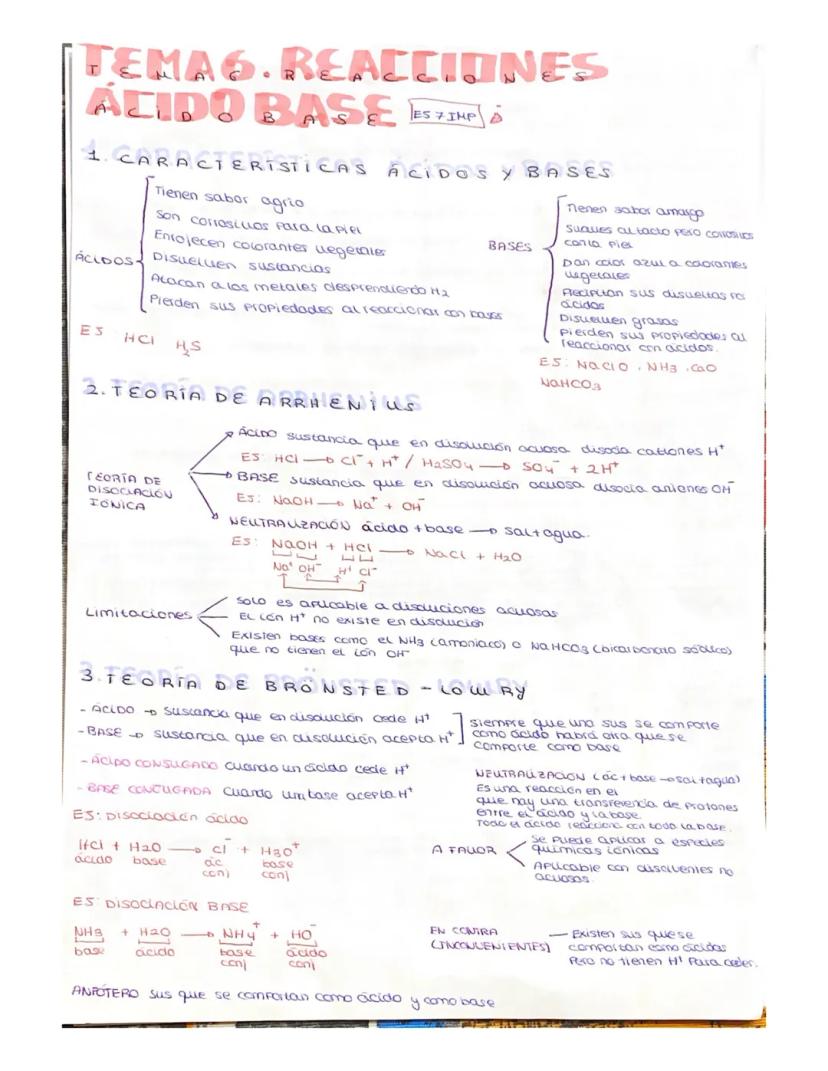 TEMA 6. REACCIONES
ÁCIDO BASE ES 7 IMP
1. CARACTERÍSTICAS ÁCIDOS Y BASES
ÁCIDOS
Tienen sabor agrio
Son corrosivos para la piel
Enrojecen colorantes vegetales
Disuelven sustancias
Atacan a los metales desprendiendo H2
Pierden sus propiedades al reaccionar con bases
EJ HCl H2S
BASES
Tienen sabor amargo
Suaves al tacto pero corrosivos
con la piel
Dan color azul a colorantes
vegetales
Precipitan sus disueltas por
ácidos
Disuelven grasas
Pierden sus propiedades al
reaccionar con ácidos.
EJ: NaClO, NH3, CaO
NaHCO3
2. TEORÍA DE ARRHENIUS
TEORÍA DE
DISOCIACIÓN
IÓNICA
ÁCIDO sustancia que en disolución acuosa disocia cationes H+
EJ: HCl → Cl- + H+ / H2SO4 → SO4- + 2H+
BASE sustancia que en disolución acuosa disocia aniones OH-
EJ: NaOH → Na+ + OH-
NEUTRALIZACIÓN ácido + base → sal + agua.
EJ: NaOH + HCl → NaCl + H2O
Na+ OH- H+ Cl-
Limitaciones
Solo es aplicable a disoluciones acuosas
El ión H+ no existe en disolución
Existen bases como el NH3 (amoniaco) o NaHCO3 (bicarbonato sódico)
que no tienen el ión OH-
3. TEORÍA DE BRÖNSTED - LOWRY
- ÁCIDO → sustancia que en disolución cede H+
- BASE → sustancia que en disolución acepta H+
siempre que una sus se comporte
como ácido habrá otra que se
comporte como base
- ÁCIDO CONJUGADO cuando un ácido cede H+
- BASE CONJUGADA cuando un base acepta H+
NEUTRALIZACIÓN (ác + base → sal + agua)
Es una reacción en el
que hay una transferencia de protones
entre el ácido y la base.
Todo el ácido reacciona con toda la base.
EJ: Disociación ácido
HCl + H2O → Cl- + H3O+
ácido base ác conj base conj
A FAVOR
Se puede aplicar a especies
químicas iónicas
Aplicable con disolventes no
acuosos.
EJ: DISOCIACIÓN BASE
NH3 + H2O → NH4+ + HO-
base ácido base conj ácido conj
EN CONTRA
(INCONVENIENTES)
Existen sus que se
comportan como ácidos
pero no tienen H+ para ceder.
ANFÓTERO sus que se comportan como ácido y como base